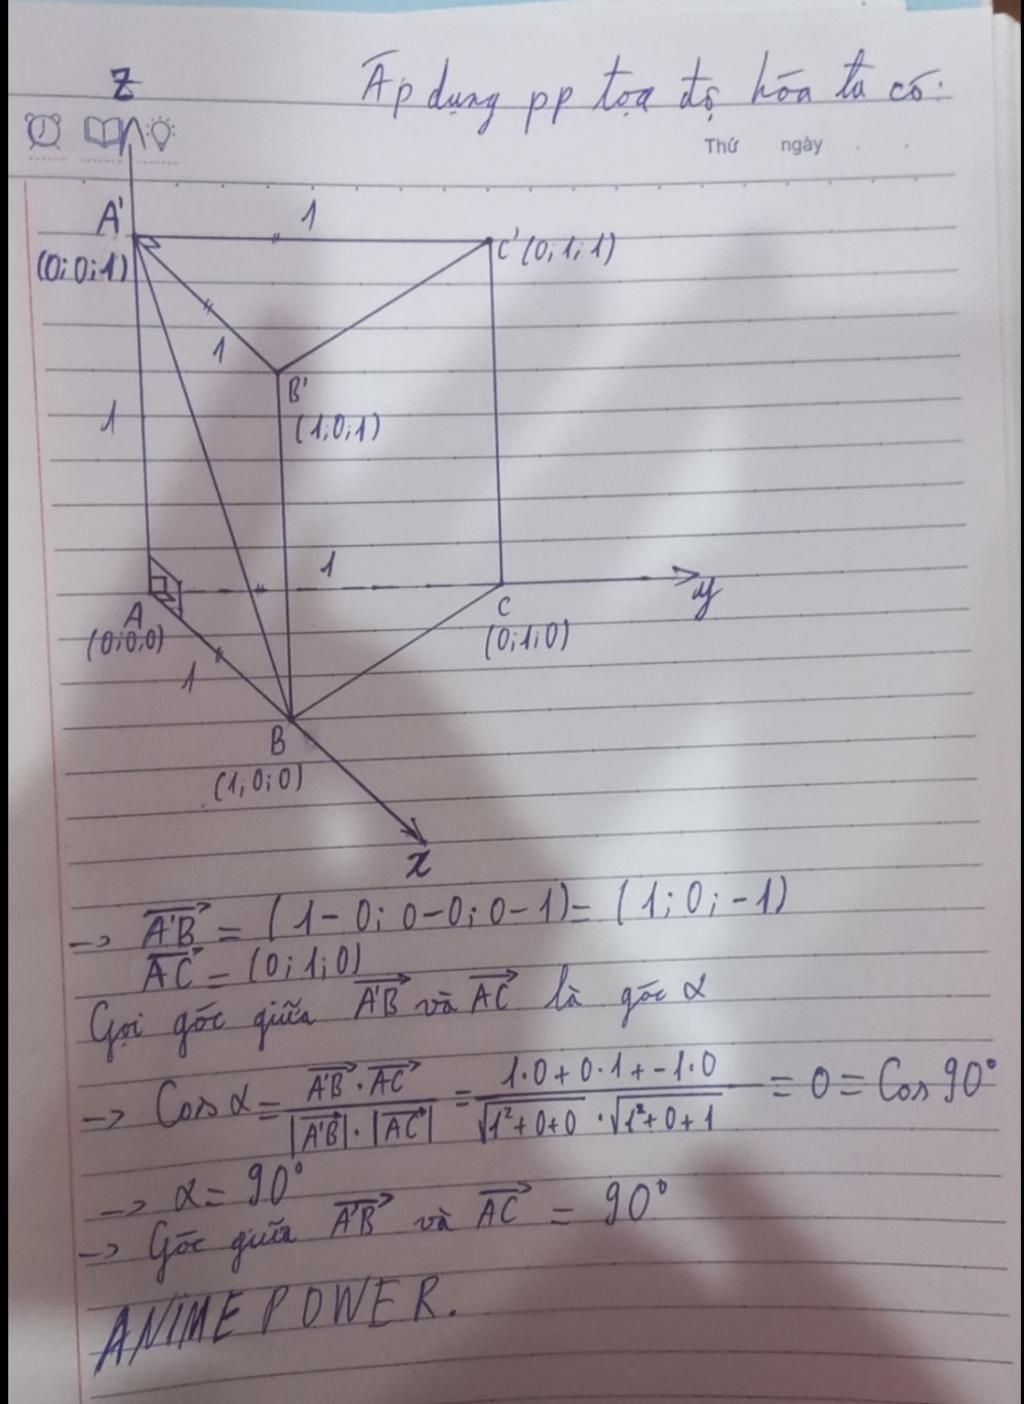 Áp dụng pp tọa độ hóa ta có:
Thứ ngày
Z
A'
(0;0;1)
1
C'(0;1;1)
1
B'
(1;0;1)
1
1
A
(0;0;0)
C
(0;1;0)
y
1
B
(1;0;0)
x
→ A'B = (1-0; 0-0; 0-1) = (1; 0; -1)
AC = (0; 1; 0)
Gọi góc giữa A'B và AC là góc α
→ Cos α = A'B · AC / |A'B| · |AC| = 1·0 + 0·1 + -1·0 / √1²+0+0 · √1²+0+1 = 0 = Cos 90°
→ α = 90°
→ Góc giữa A'B và AC = 90°
ANIME POWER.